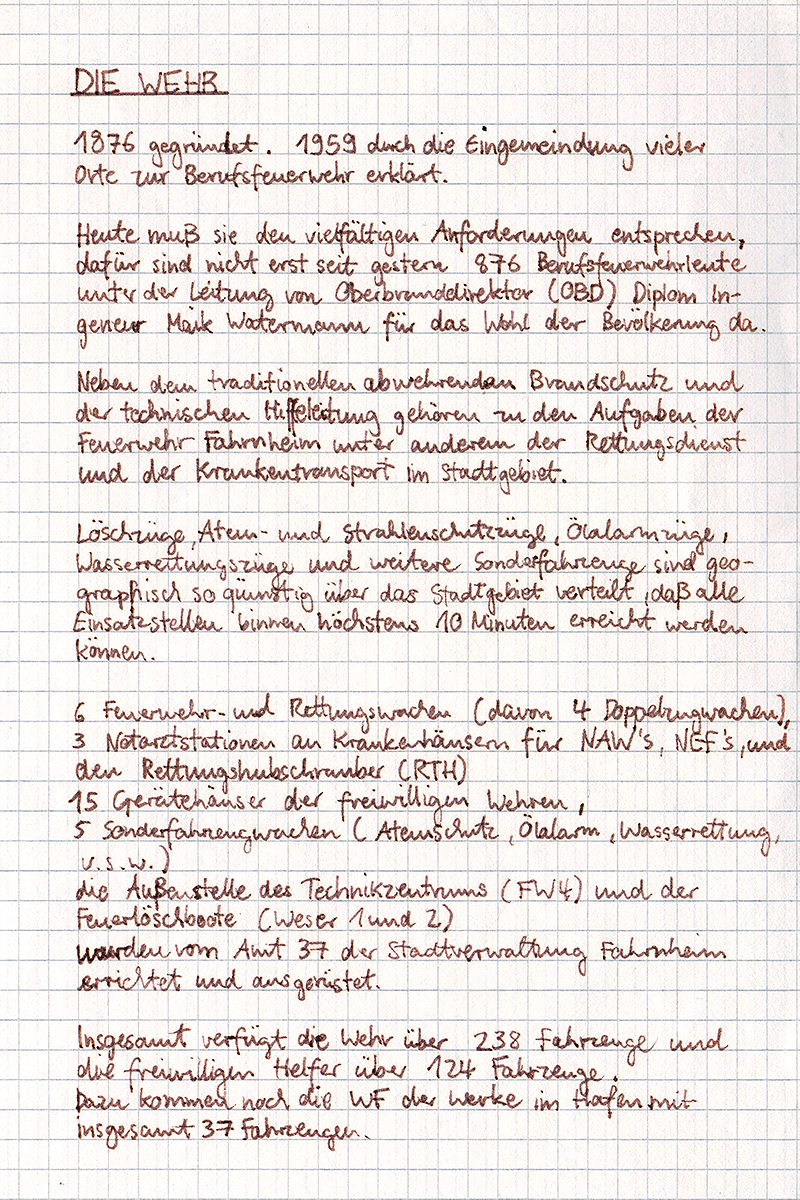 DIE WEHR
1876 gegründet. 1959 durch die Eingemeindung vieler
Orte zur Berufsfeuerwehr erklärt.
Heute muß sie den vielfältigen Anforderungen entsprechen,
dafür sind nicht erst seit gestern 876 Berufsfeuerwehrleute
unter der Leitung von Oberbranddirektor (OBD) Diplom In-
genieur Maik Watermann für das Wohl der Bevölkerung da.
Neben dem traditionellen abwehrenden Brandschutz und
der technischen Hilfeleistung gehören zu den Aufgaben der
Feuerwehr Fahrnheim unter anderem der Rettungsdienst
und der Krankentransport im Stadtgebiet.
Löschzüge, Atem- und Strahlenschutzzüge, Ölalarmzüge,
Wasserrettungszüge und weitere Sonderfahrzeuge sind geo-
graphisch so günstig über das Stadtgebiet verteilt, daß alle
Einsatzstellen binnen höchstens 10 Minuten erreicht werden
können.
6 Feuerwehr- und Rettungswachen (davon 4 Doppelzugwachen),
3 Notarztstationen an Krankenhäusern für NAW's, NEF's, und
den Rettungshubschrauber (RTH)
15 Gerätehäuser der freiwilligen Wehren,
5 Sonderfahrzeugwachen (Atemschutz, Ölalarm, Wasserrettung,
u.s.w.)
die Außenstelle des Technikzentrums (FW4) und der
Feuerlöschboote (Weser 1 und 2)
wurden vom Amt 37 der Stadtverwaltung Fahrnheim
errichtet und ausgerüstet.
Insgesamt verfügt die Wehr über 238 Fahrzeuge und
die freiwilligen Helfer über 124 Fahrzeuge.
Dazu kommen noch die WF der Werke im Hafen mit
insgesamt 37 Fahrzeugen.